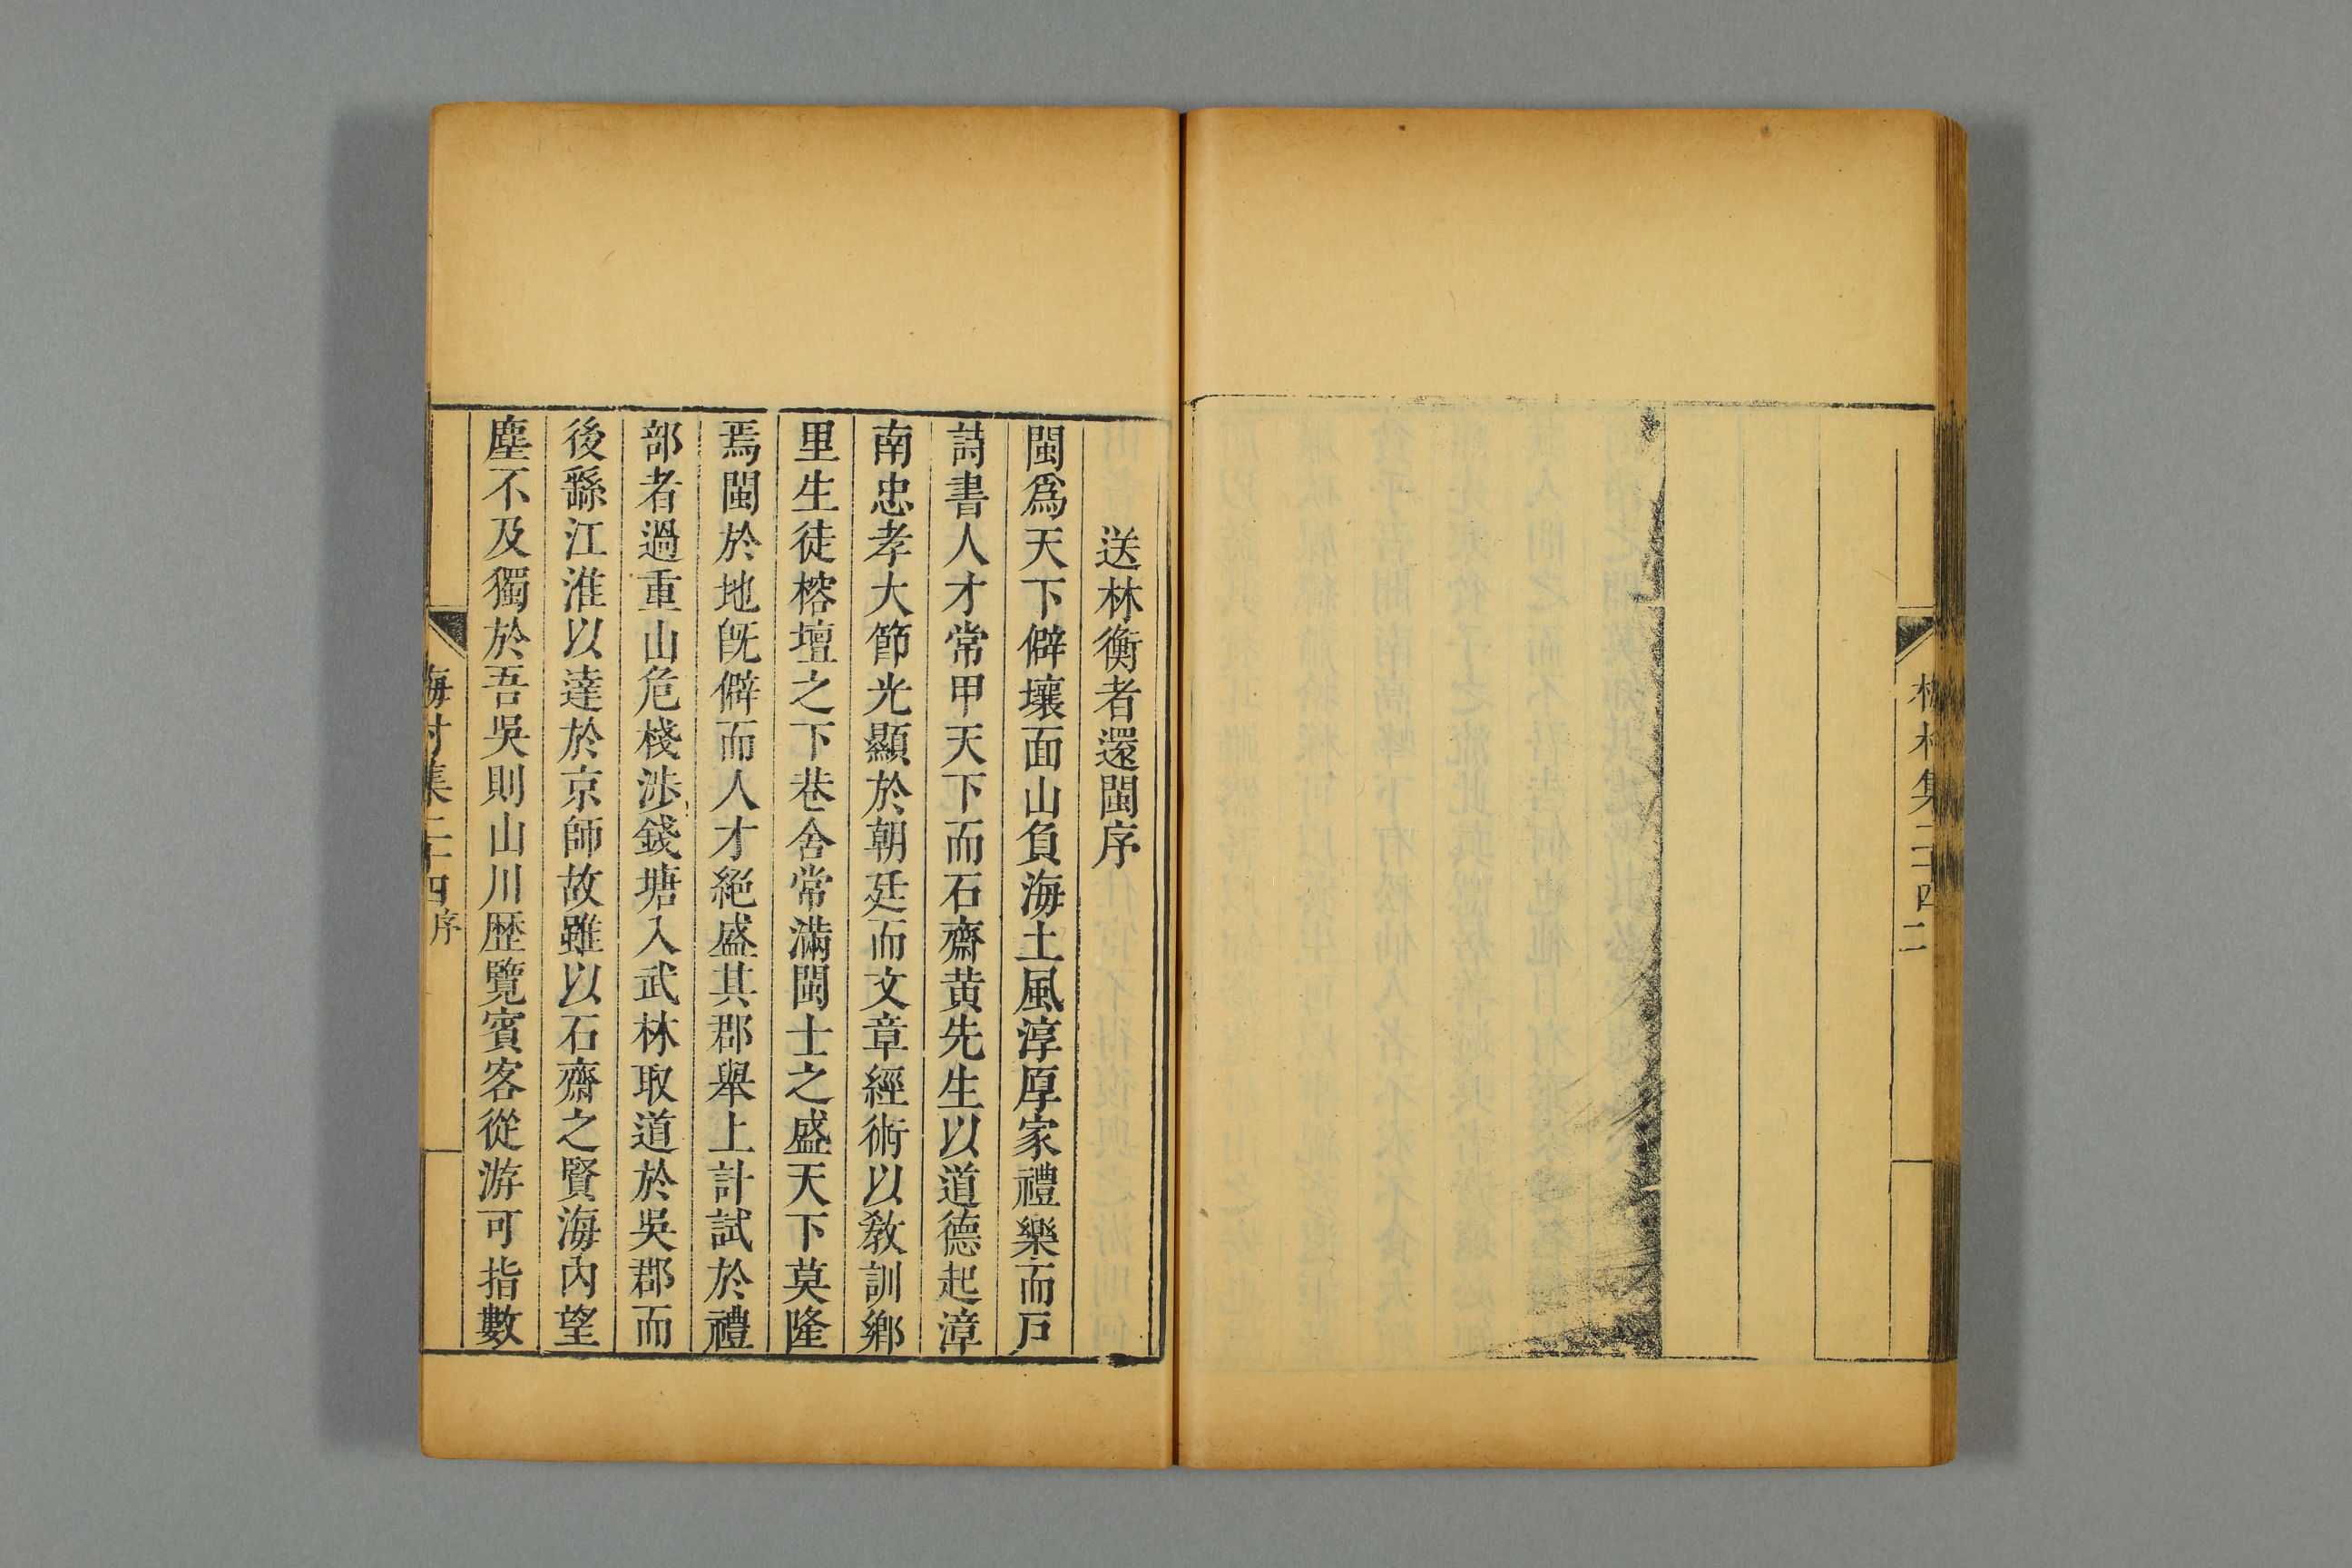 梅村集二十四 二
送林衡者還閩序
閩爲天下僻壤面山負海土風淳厚家禮樂而戸
詩書人才常甲天下而石齋黄先生以道德起漳
南忠孝大節光顯於朝廷而文章經術以敎訓鄉
里生徒榕壇之下巷舍常滿閩士之盛天下莫隆
焉閩於地旣僻而人才絕盛其郡舉上計試於禮
部者過重山危棧渉錢塘入武林取道於吳郡而
後繇江淮以達於京師故雖以石齋之賢海內望
塵不及獨於吾吳則山川歴覽賓客從游可指數
梅村集二十四 序